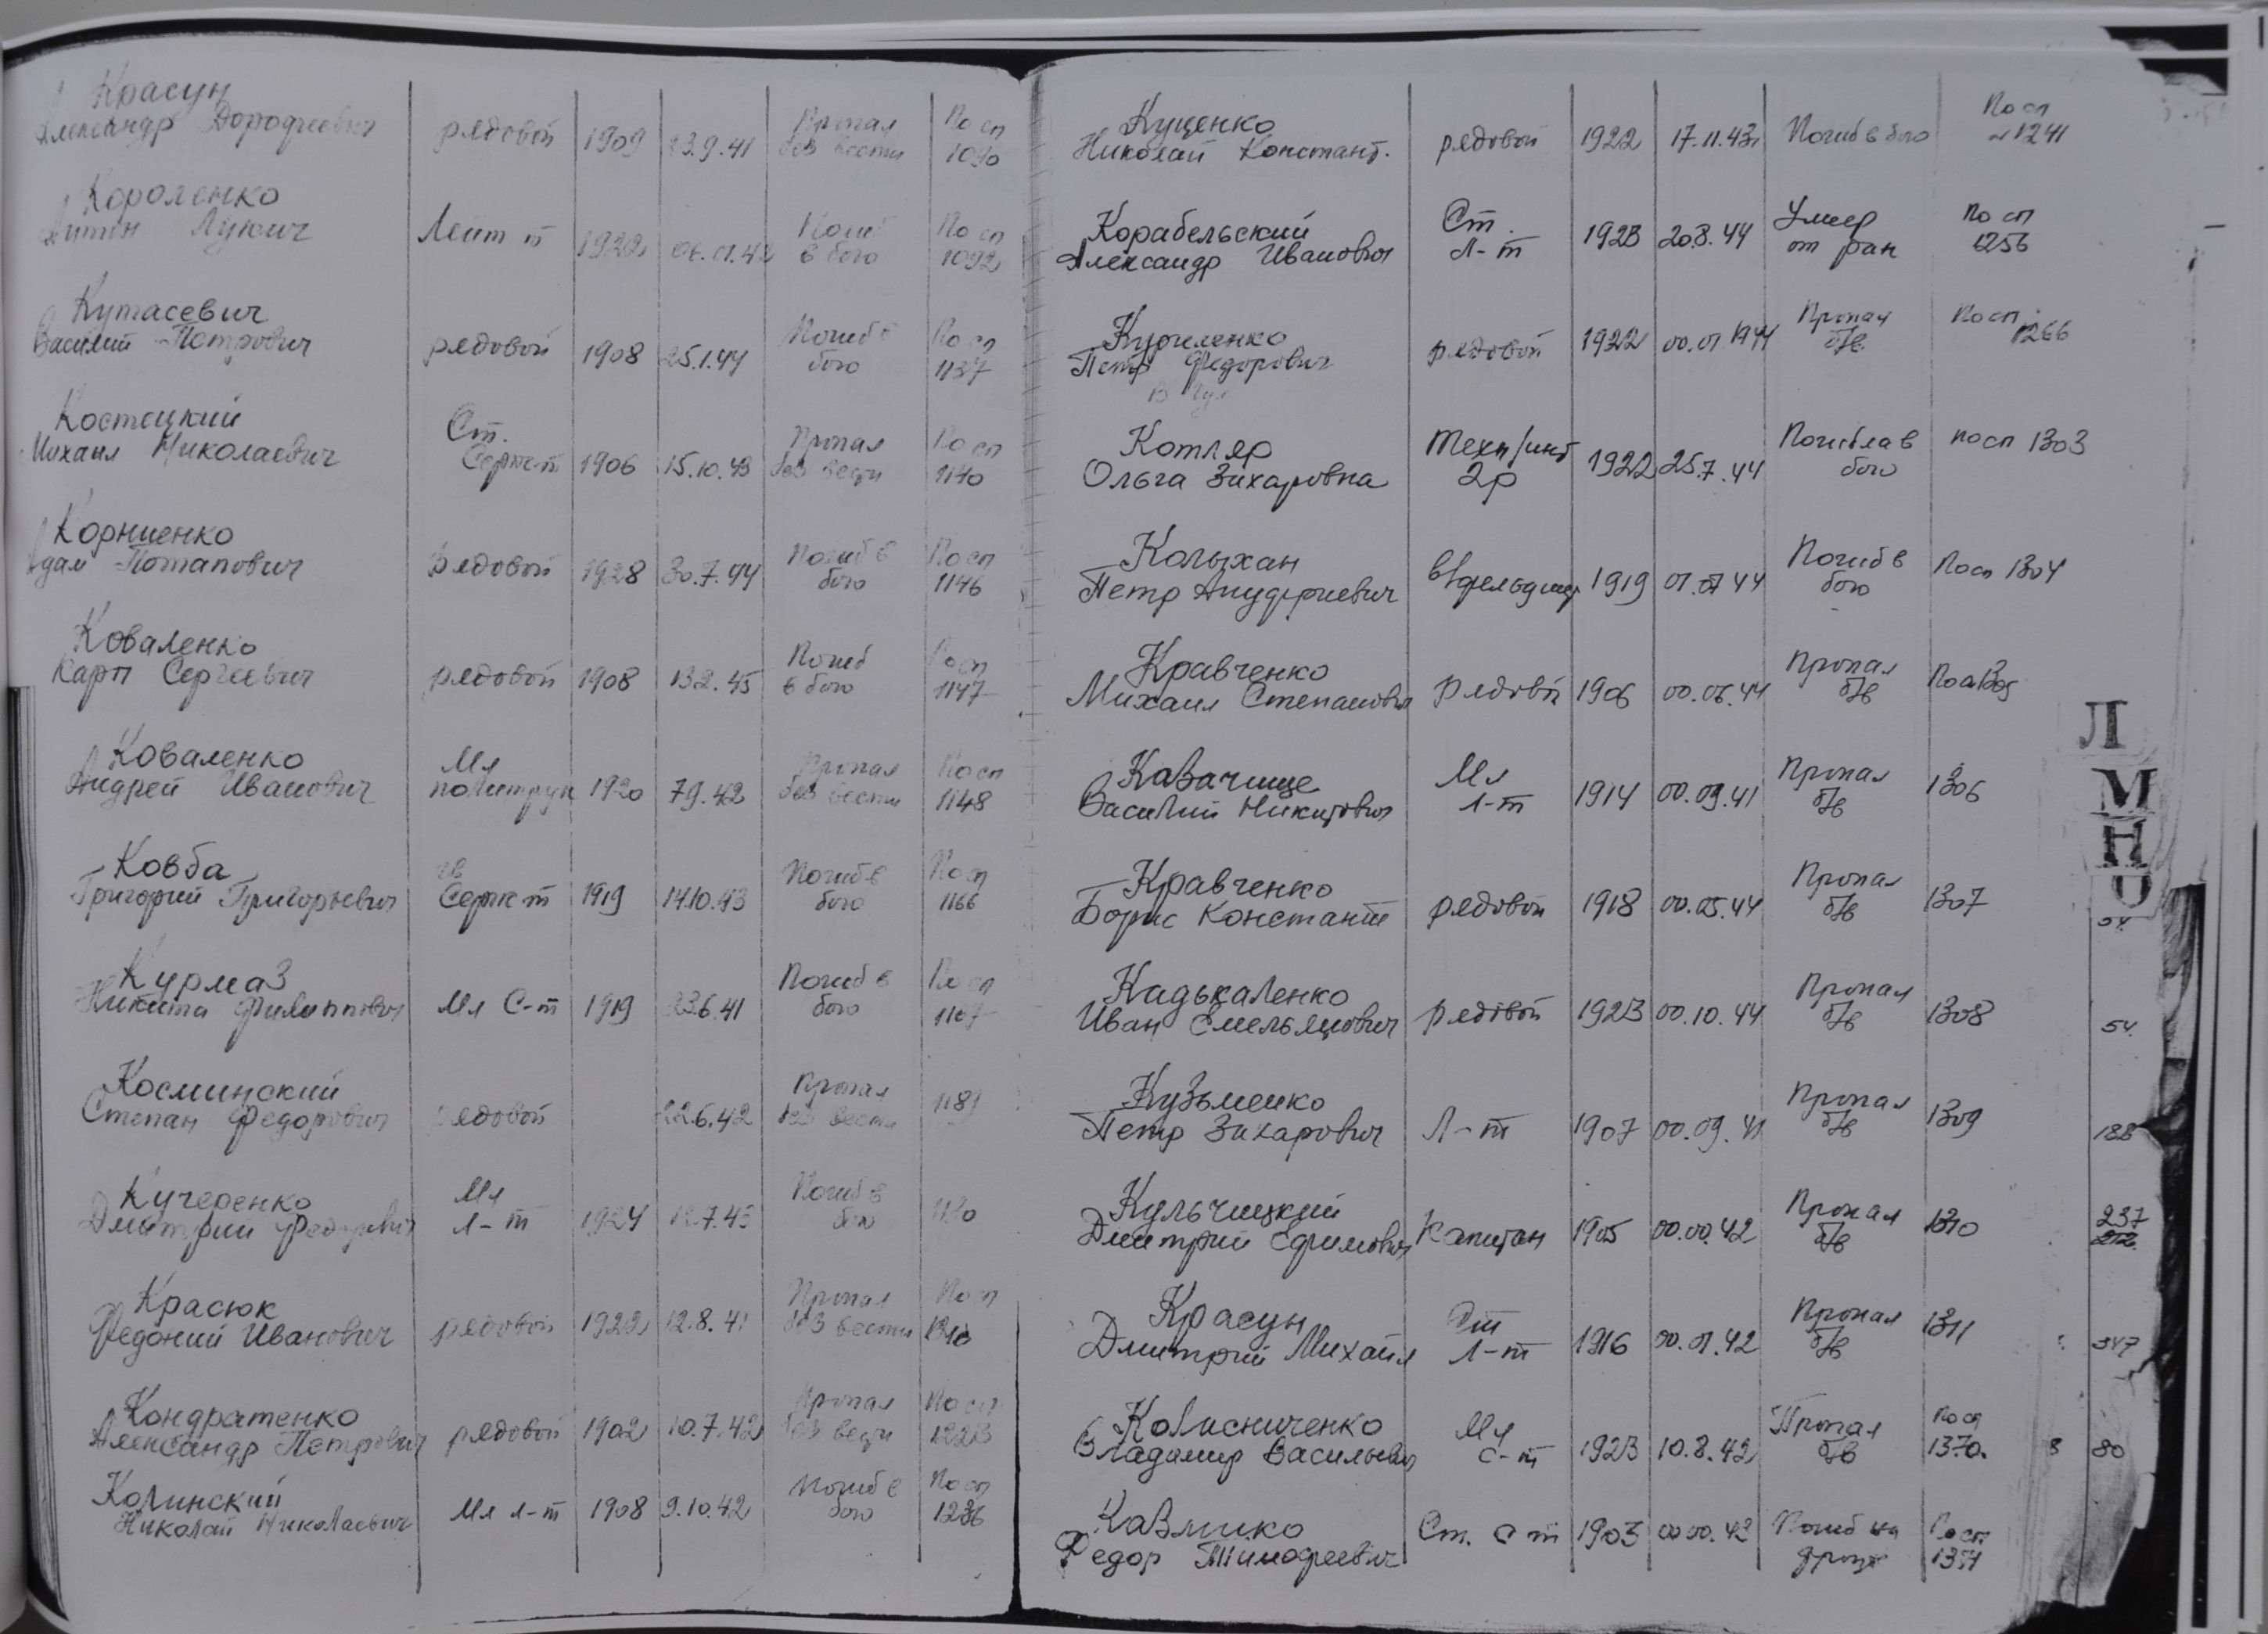 Красун
Александр Дорофеевич рядовой 1909 23.9.41 Пропал без вести По сп 1090
Короленко
Антон Лукич Лейт т 1922 06.01.42 Погиб в бою По сп 1092
Кутасевич
Василий Петрович рядовой 1908 25.1.44 Погиб в бою По сп 1137
Костецкий
Михаил Николаевич Ст. Серж-т 1906 15.10.43 Пропал без вести По сп 1140
Корниенко
Адам Потапович рядовой 1928 30.7.44 Погиб в бою По сп 1146
Коваленко
Карп Сергеевич рядовой 1908 13.2.45 Погиб в бою По сп 1147
Коваленко
Андрей Иванович Мл политрук 1920 7.9.42 Пропал без вести По сп 1148
Ковба
Григорий Григорьевич гв Серж т 1919 14.10.43 Погиб в бою По сп 1166
Курмаз
Никита Филиппович Мл С-т 1919 23.6.41 Погиб в бою По сп 1167
Косминский
Степан Федорович рядовой 22.6.42 Пропал без вести 1189
Кучеренко
Дмитрий Федорович Мл Л-т 1924 12.7.43 Погиб в бою 1190
Красюк
Федоний Иванович рядовой 1922 12.8.41 Пропал без вести По сп
Кондратенко
Александр Петрович рядовой 1902 10.7.42 Пропал без вести По сп 1223
Колинский
Николай Николаевич Мл л-т 1908 9.10.42 Погиб в бою По сп 1236
Кущенко
Николай Констант. рядовой 1922 17.11.43 Погиб в бою По сп 1241
Корабельский
Александр Иванович Ст. Л-т 1923 20.8.44 Умер от ран По сп 1256
Куриленко
Петр Федорович рядовой 1922 00.01 1944 Пропал б/в По сп. 1266
Котляр
Ольга Захаровна Техн/инт 2р 1922 25.7.44 Погибла в бою По сп 1303
Колыхан
Петр Ануфриевич в/фельдшер 1919 01.07 44 Погиб в бою По сп 1304
Кравченко
Михаил Степанович рядовой 1906 00.06.44 Пропал б/в По сп 1305
Казачище
Василий Никитович Мл Л-т 1914 00.09.41 Пропал б/в 1306
Кравченко
Борис Констант рядовой 1918 00.05.44 Пропал б/в 1307
Кадькаленко
Иван Емельянович рядовой 1923 00.10.44 Пропал б/в 1308
Кузьменко
Петр Захарович Л-т 1907 00.09.41 Пропал б/в 1309
Кульчицкий
Дмитрий Ефимович Капитан 1905 00.00.42 Пропал б/в 1310
Красун
Дмитрий Михайл Ст Л-т 1916 00.01.42 Пропал б/в 1311
Колисниченко
Владимир Васильевич Мл С-т 1923 10.8.42 Пропал б/в По сп 1370
Кавлико
Федор Тимофеевич Ст. С т 1903 00 00.43 Погиб на фронте По сп 1371
Л
М
Н
О
54.
54.
188
237
347
8 80